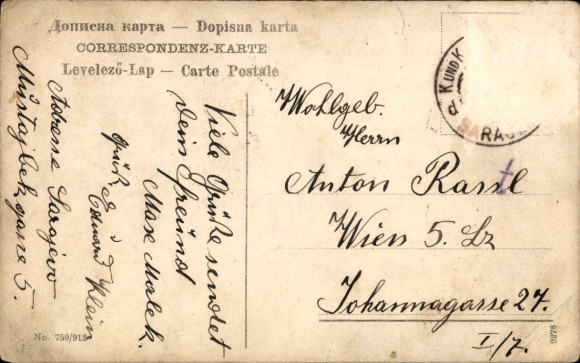 Дописна карта — Dopisna karta
CORRESPONDENZ-KARTE
Levelező-Lap — Carte Postale
K UND K
SARAJ
Wohlgeb.
Herrn
Anton Rassl
Wien 5. Bz
Johannagasse 27.
I/7.
Viele Grüße sendet
Dein Freund
Max Malek.
Grüße
Eduard Klein
Adresse Sarajevo
Mustajbeggasse 5.
No. 759/913
9878